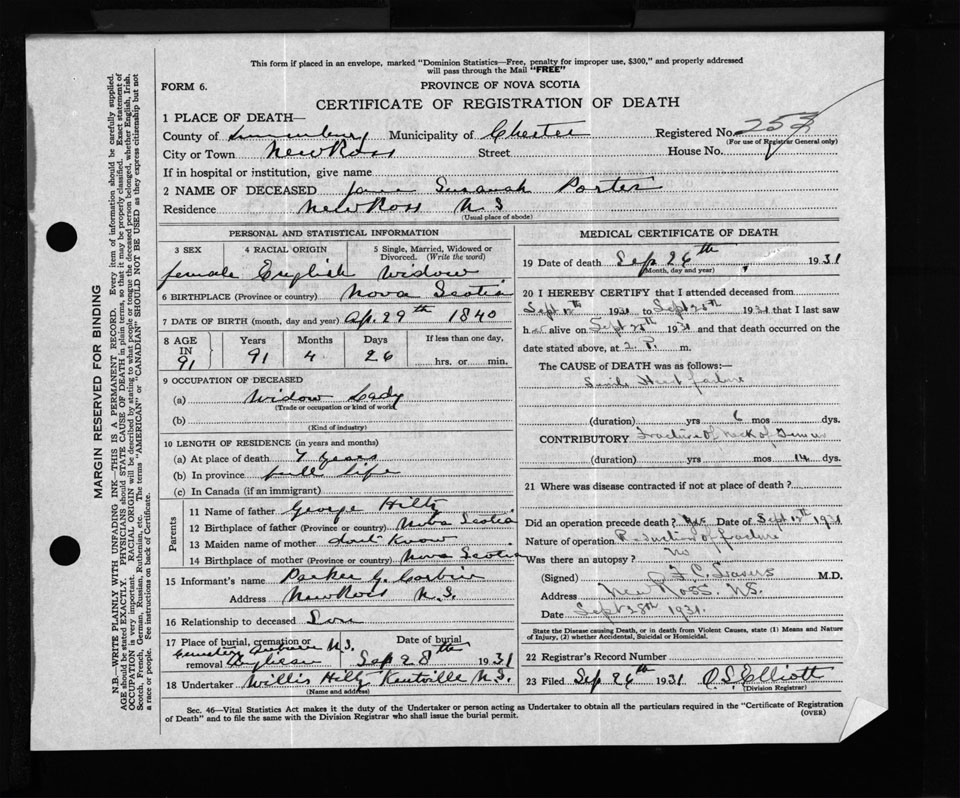 This form if placed in an envelope, marked "Dominion Statistics—Free, penalty for improper use, $300," and properly addressed
will pass through the Mail "FREE"
FORM 6.
PROVINCE OF NOVA SCOTIA
CERTIFICATE OF REGISTRATION OF DEATH
1 PLACE OF DEATH—
County of Lunenburg Municipality of Chester Registered No. 253
(For use of Registrar General only)
City or Town New Ross Street House No.
If in hospital or institution, give name
2 NAME OF DECEASED Jane Susanah Porter
Residence New Ross N.S
(Usual place of abode)
PERSONAL AND STATISTICAL INFORMATION
3 SEX 4 RACIAL ORIGIN 5 Single, Married, Widowed or
Divorced. (Write the word)
female English Widow
6 BIRTHPLACE (Province or country) Nova Scotia
7 DATE OF BIRTH (month, day and year) Ap. 29th 1840
8 AGE Years Months Days If less than one day,
IN
91 91 4 26 hrs. or min.
9 OCCUPATION OF DECEASED
(a) Widow Lady
(Trade or occupation or kind of work)
(b)
(Kind of industry)
10 LENGTH OF RESIDENCE (in years and months)
(a) At place of death 7 years
(b) In province full life
(c) In Canada (if an immigrant)
Parents
11 Name of father George Hiltz
12 Birthplace of father (Province or country) Nova Scotia
13 Maiden name of mother dont Know
14 Birthplace of mother (Province or country) Nova Scotia
15 Informant's name Parker G. Corbin
Address New Ross N.S.
16 Relationship to deceased Son
17 Place of burial, cremation or Date of burial
removal Sep 28th 1931
18 Undertaker Willis Hiltz Kentville N.S.
(Name and address)
MEDICAL CERTIFICATE OF DEATH
19 Date of death Sep 26th 1931
(Month, day and year)
20 I HEREBY CERTIFY that I attended deceased from
Sept 12th 1931 to Sept 25th 1931 that I last saw
her alive on Sept 25th 1931 and that death occurred on the
date stated above, at 2 P. m.
The CAUSE OF DEATH was as follows:—
Heart failure
(duration) yrs 6 mos dys.
CONTRIBUTORY Fracture of neck of Femur
(duration) yrs mos 14 dys.
21 Where was disease contracted if not at place of death?
Did an operation precede death? Yes Date of Sept 13th 1931
Nature of operation Reduction of fracture
Was there an autopsy? No
(Signed) M.D.
Address New Ross. N.S.
Date Sept 28th 1931.
State the Disease causing Death, or in death from Violent Causes, state (1) Means and Nature
of Injury, (2) whether Accidental, Suicidal or Homicidal.
22 Registrar's Record Number
23 Filed Sep 26th 1931 O.S. Elliott
(Division Registrar)
Sec. 46—Vital Statistics Act makes it the duty of the Undertaker or person acting as Undertaker to obtain all the particulars required in the "Certificate of Registration
of Death" and to file the same with the Division Registrar who shall issue the burial permit.
(OVER)
MARGIN RESERVED FOR BINDING
N.B.—WRITE PLAINLY WITH UNFADING INK—THIS IS A PERMANENT RECORD. Every item of information should be carefully supplied.
AGE should be stated EXACTLY. PHYSICIANS should STATE CAUSE OF DEATH in plain terms, so that it may be properly classified. Exact statement of
OCCUPATION is very important. RACIAL ORIGIN will be described by stating to what people or tongue the deceased person belonged, whether English, Irish,
Scotch, French, German, Russian, Ruthenian, etc. The terms "AMERICAN" or "CANADIAN" SHOULD NOT BE USED as they express citizenship but not
a race or people. See instructions on back of Certificate.